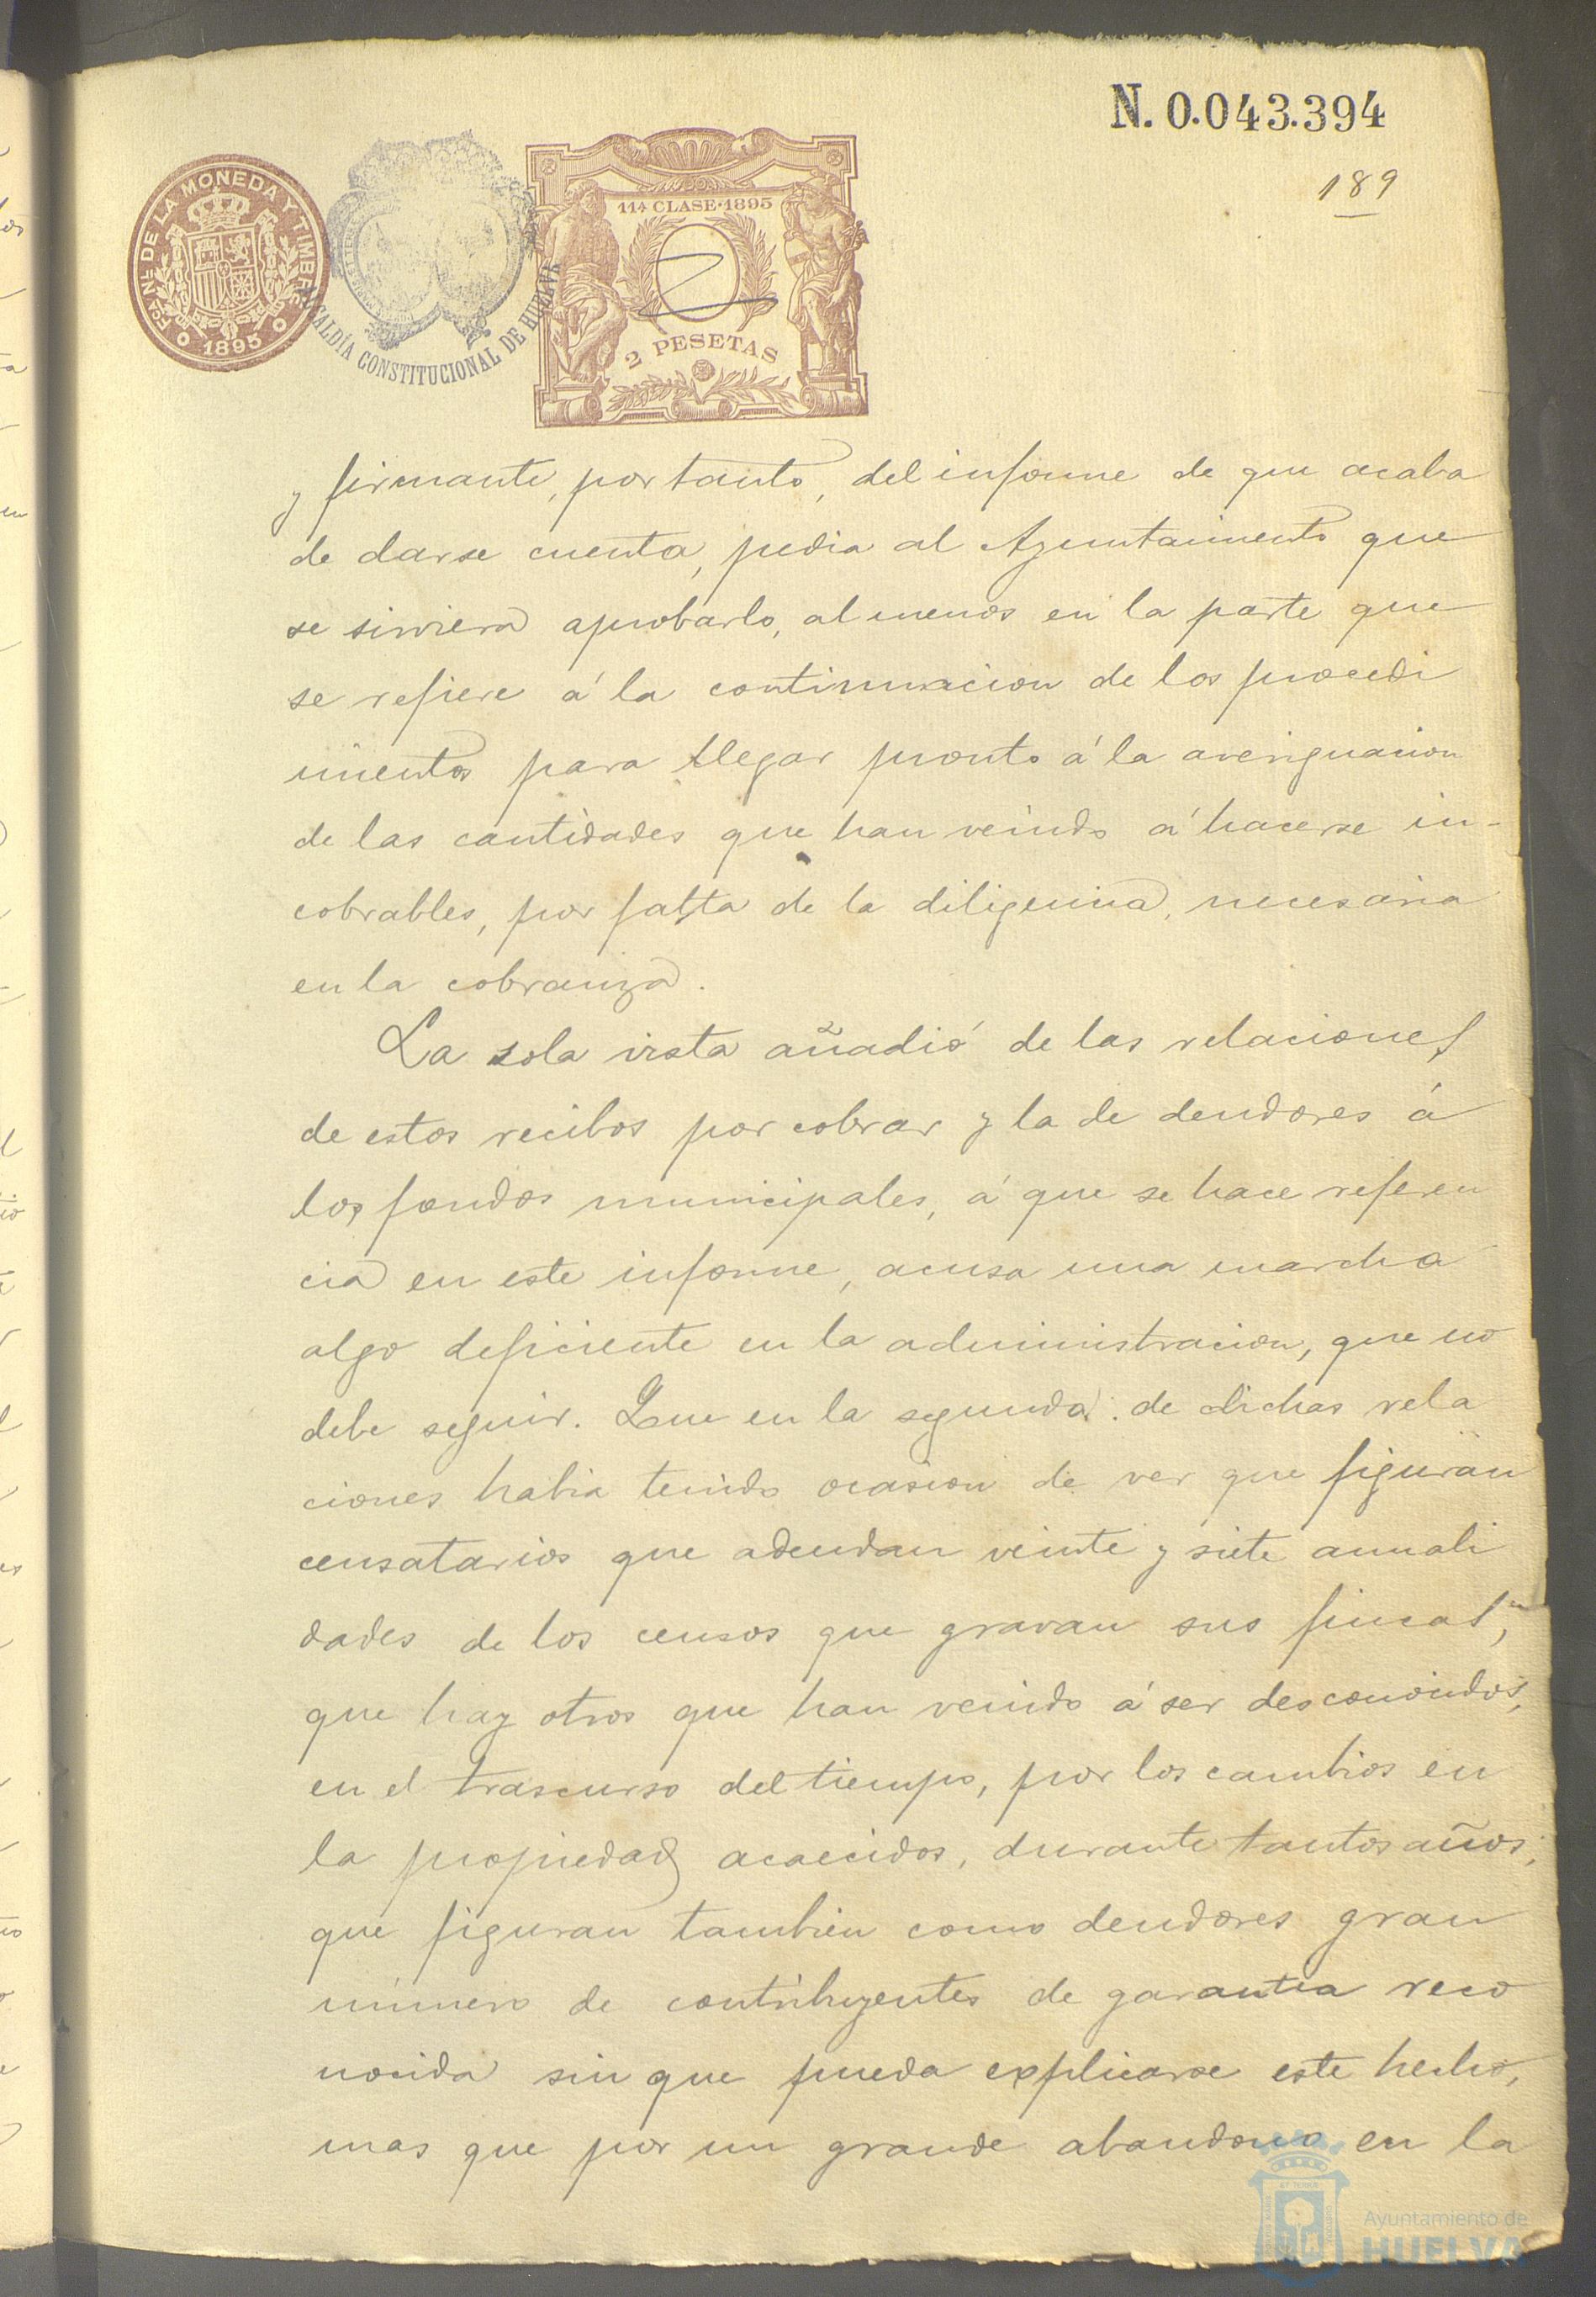 N. 0.043.394
189
FCA. NL. DE LA MONEDA Y TIMBRE
1895
ALCALDÍA CONSTITUCIONAL DE HUELVA
11ª CLASE·1895
2 PESETAS
y firmante, por tanto, del informe de que acaba
de darse cuenta, pedia al Ayuntamiento que
se sirviera aprobarlo, al menos en la parte que
se refiere á la continuacion de los procedi
mientos para llegar pronto á la averiguacion
de las cantidades que han venido á hacerse in-
cobrables, por falta de la diligencia, necesaria
en la cobranza.
La sola vista añadió de las relaciones
de estos recibos por cobrar y la de deudores á
los fondos municipales, á que se hace referen
cia en este informe, acusa una marcha
algo deficiente en la administracion, que no
debe seguir. Que en la segunda de dichas rela
ciones habia tenido ocasion de ver que figuran
censatarios que adeudan veinte y siete anuali
dades de los censos que gravan sus fincas,
que hay otros que han venido á ser desconocidos,
en el trascurso del tiempo, por los cambios en
la propiedad acaecidos, durante tantos años;
que figuran tambien como deudores gran
número de contribuyentes de garantia reco
nocida sin que pueda explicarse este hecho,
mas que por un grande abandono en la
Ayuntamiento de
HUELVA